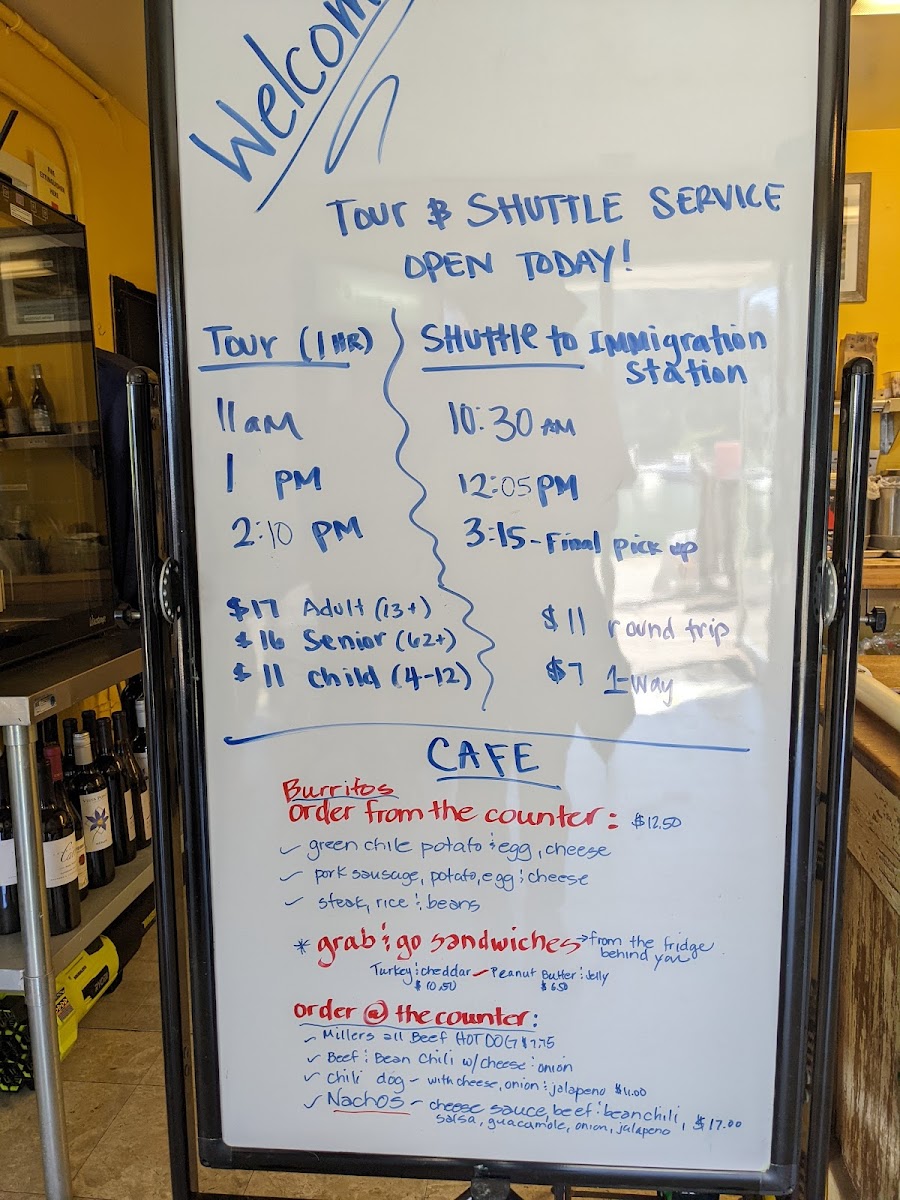 Welcom
TOUR & SHUTTLE SERVICE
OPEN TODAY!
TOUR (1 HR)
11 AM
1 PM
2:10 PM
$17 Adult (13+)
$16 Senior (62+)
$11 child (4-12)
SHUTTLE to Immigration
Station
10:30 AM
12:05 PM
3:15 - Final pick up
$11 round trip
$7 1-way
CAFE
Burritos
order from the counter: $12.50
✓ green chile potato & egg, cheese
✓ pork sausage, potato, egg & cheese
✓ steak, rice & beans
* grab & go sandwiches → from the fridge
behind you
Turkey & cheddar - Peanut Butter & Jelly
$10.50 $6.50
order @ the counter:
✓ Millers all Beef HOT DOG $7.75
✓ Beef & Bean Chili w/ cheese & onion
✓ chili dog - with cheese, onion & jalapeno $11.00
✓ Nachos - cheese sauce, beef & bean chili,
salsa, guacamole, onion, jalapeno $17.00